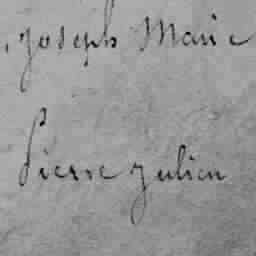 , joseph Marie
Pierre julien